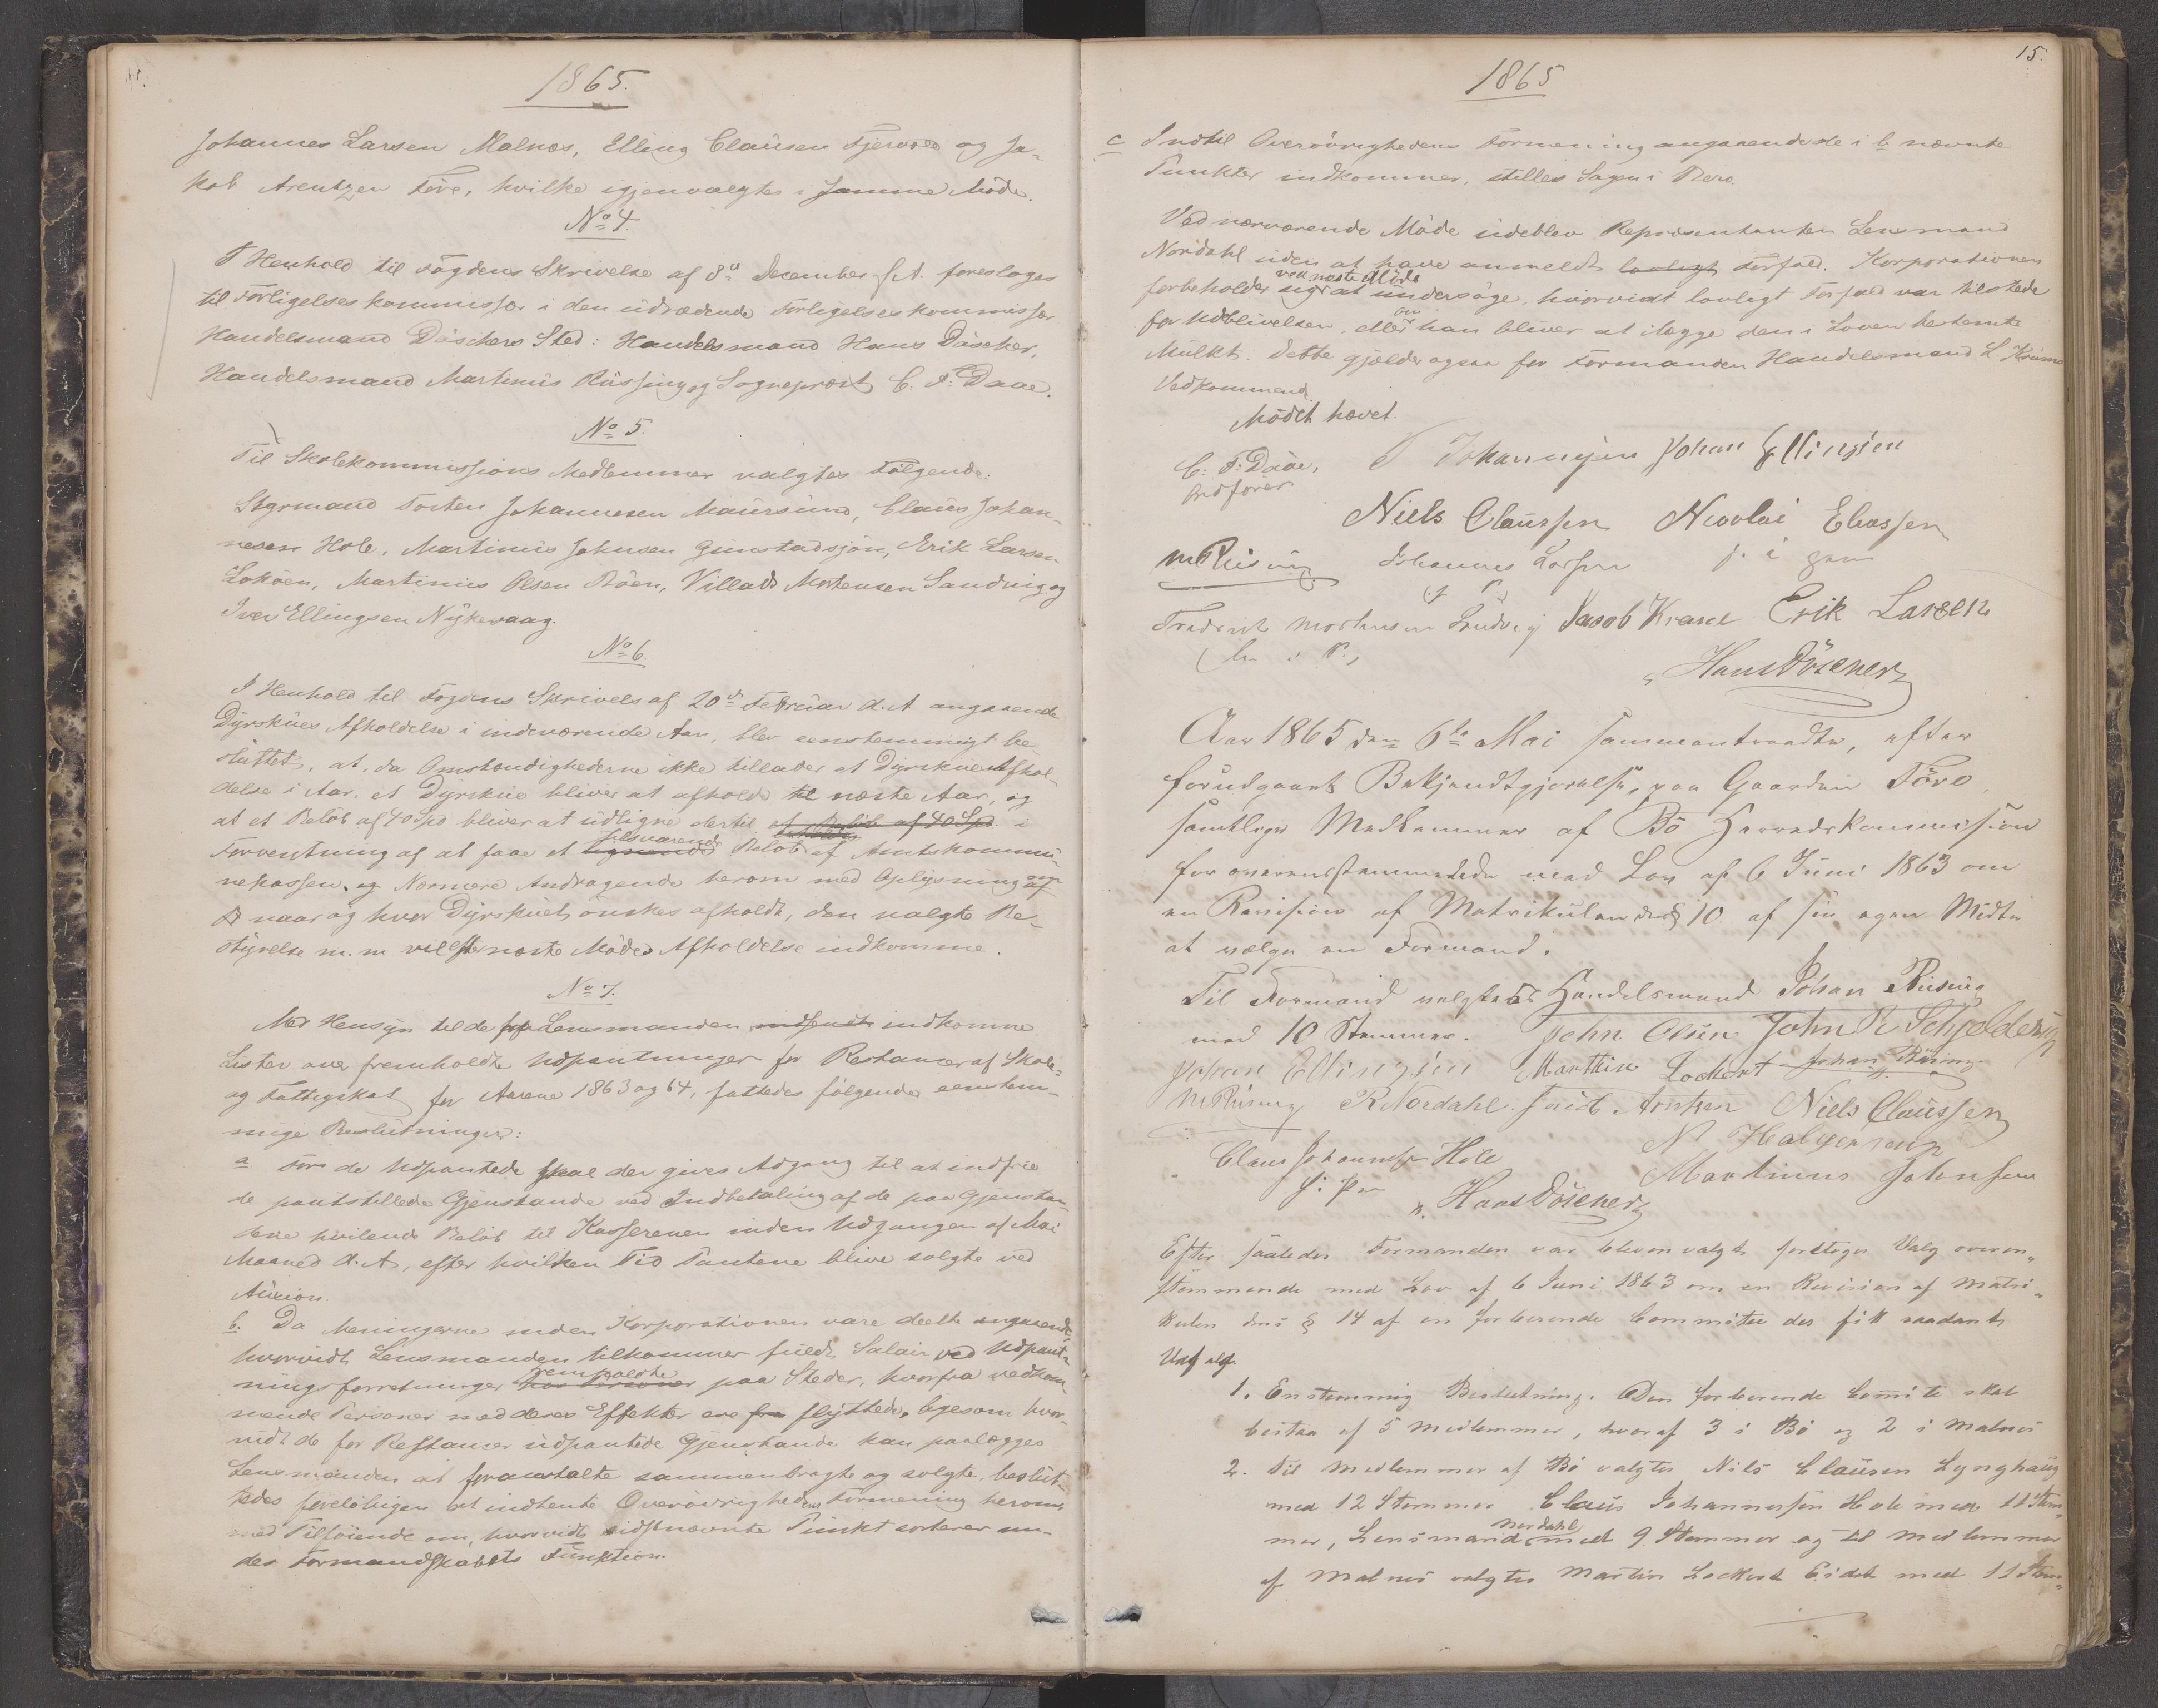 1865.
Johannes Larsen Malnæs, Elling Clausen Fjærvold og Ja-
kob Arentzen Føre, hvilke igjenvalgtes i samme Møde.
No 4.
I Henhold til Fogdens Skrivelse af 8de December f. A. foresloges
til Forligelseskommissær i den udtrædende Forligelseskommissær
Handelsmand Døschers Sted: Handelsmand Hans Døscher,
Handelsmand Martinus Rüssing og Sogneprest C. F. Daae.
No 5.
Til Skolekommissions Medlemmer valgtes Følgende:
Styrmand Torsten Johannesen Maursund, Claus Johan-
nesen Hole, Martinus Johnsen Gimstadsjøn, Erik Larsen
Lokøen, Martinus Olsen Røen, Villads Mortensen Sandvig og
Iver Ellingsen Nykvaag.
No 6.
I Henhold til Fogdens Skrivels af 20de Februar d. A angaaende
Dyrskues Afholdelse i indeværende Aar, blev eenstemmigt be-
sluttet, at, da Omstændighederne ikke tillader et Dyrskues Afhol-
delse i Aar, et Dyrskue bliver at afholde til næste Aar, og
at et Beløb af 40 Spd bliver at udligne dertil et Beløb af 40 Spd. i
Forventning af at faae et tilsvarende Beløb af Amtskommu-
nekassen. og Nærmere Andragende herom med Oplysning om
naar og hvor Dyrskuet ønskes afholdt, den valgte Be-
styrelse m. m vil efter næste Mødes Afholdelse indkomme.
No 7.
Med Hensyn til de fra Lensmanden indsendte indkomne
Lister over fremholdte Udpantninger for Restancer af Skole-
og Fattigskat for Aarene 1863 og 64, fattedes følgende eenstem-
mige Beslutninger:
a. For de Udpantede skal der gives Adgang til at indfrie
de pantstillede Gjenstande ved Indbetaling af de paa Gjenstan-
dene hvilende Beløb til Kassereren inden Udgangen af Mai
Maaned d. A, efter hvilken Tid Pantene blive solgte ved
Auction.
b. Da Meningerne inden Korporationen vare deelte angaaende,
hvorvidt Lensmanden tilkommer fuldt Salair ved Udpant-
ningsforretninger fremholdte hos Personer paa Steder, hvorfra vedkom-
mende Personer med deres Effekter ere fra flyttede, ligesom hvor-
vidt de for Restancer udpantede Gjenstande kan paalægges
Lensmanden at foranstalte sammenbragte og solgte, beslut-
tedes foreløbigen at indhente Overøvrighedens Formening herom,
med Tilføiende om, hvorvidt sidstnævnte Punkt sorterer un-
der Formandskabets Funktion.
15.
1865
c Indtil Overøvrighedens Formening angaaende de i b nævnte
Punkter indkommer, stilles Sagen i Bero.
Ved nærværende Møde udeblev Repræsentanten Lensmand
Nordahl uden at have anmeldt lovligt Forfald. Korporationen
forbeholder sig ved næste Møde at undersøge, hvorvidt lovligt Forfald var tilstede
for Udeblivelsen, eller om han bliver at ilægge den i Loven bestemte
Mulkt. Dette gjælder ogsaa for Formanden Handelsmand L. Krane
Vedkommende.
Mødet hævet.
C. F. Daae,
Ordfører
T Johannesen Johan Ellingsen
Niels Claussen Nicolai Eliassen
MRüsing Johannes Larsen
Fredrik Mortensen Jacob Krane Erik Larsen
Hans Döscher
Aar 1865 den 6te Mai sammentraadte, efter
forudgaaet Bekjendtgjørelse, paa Gaarden Føre
samtlige Medlemmer af Bø Herredskommission
for overensstemmende med Lov af 6 Juni 1863 om
en Revision af Matrikulen dens § 10 af sin egen Midte
at vælge en Formand.
Til Formand valgtes Handelsmand Johan Rüsing
med 10 Stemmer. John Olsen John R Schjelderup
Johan Ellingsen Marthin Lockert Johan Rüsing
MRüsing R Nordahl. Arntsen Niels Claussen
Claus Johannesen Hole N Halgensen
Martinus Johnsen
Hans Döscher
Efter saaledes Formanden var bleven valgt foretoges Valg overen-
stemmende med Lov af 6 Juni 1863 om en Revision af Matri-
kulen dens § 14 af en forberende Committee der fik saadant
Udfald.
1. Enstemmig Beslutning. Den forberende Comite skal
bestaa af 5 medlemmer, hvoraf 3 i Bø og 2 i Malnes
2. Til medlemmer af Bø valgtes Nils Clausen Lynghaug
med 12 Stemmer Claus Johannessen Hole med 11 Stem-
mer, Lensmand Nordahl med 9 Stemmer og til medlemmer
af Malnes valgtes Martin Lockert Eidet med 11 Stem-